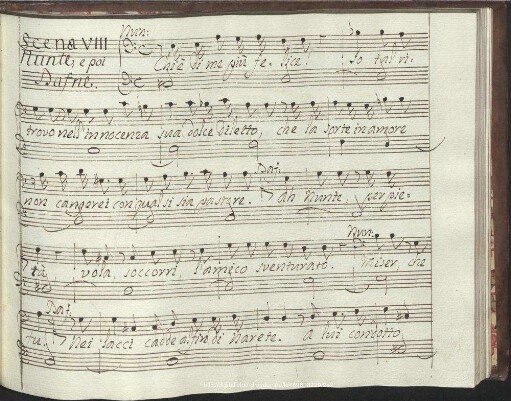 Scena VIII Nun:
Nunte, e poi
Dafne.
Chi è di me più felice! Io tal ri-
trovo nell'innocenza sua dolce diletto, che la sorte in amore
non cangerei con qual si sia pastore. Daf: Ah Nunte, per pie-
tà, vola, soccorri l'amico sventurato. Nun: Miser, che
fu. Daf: Nei lacci cadde altro di Narete. a lui condotto